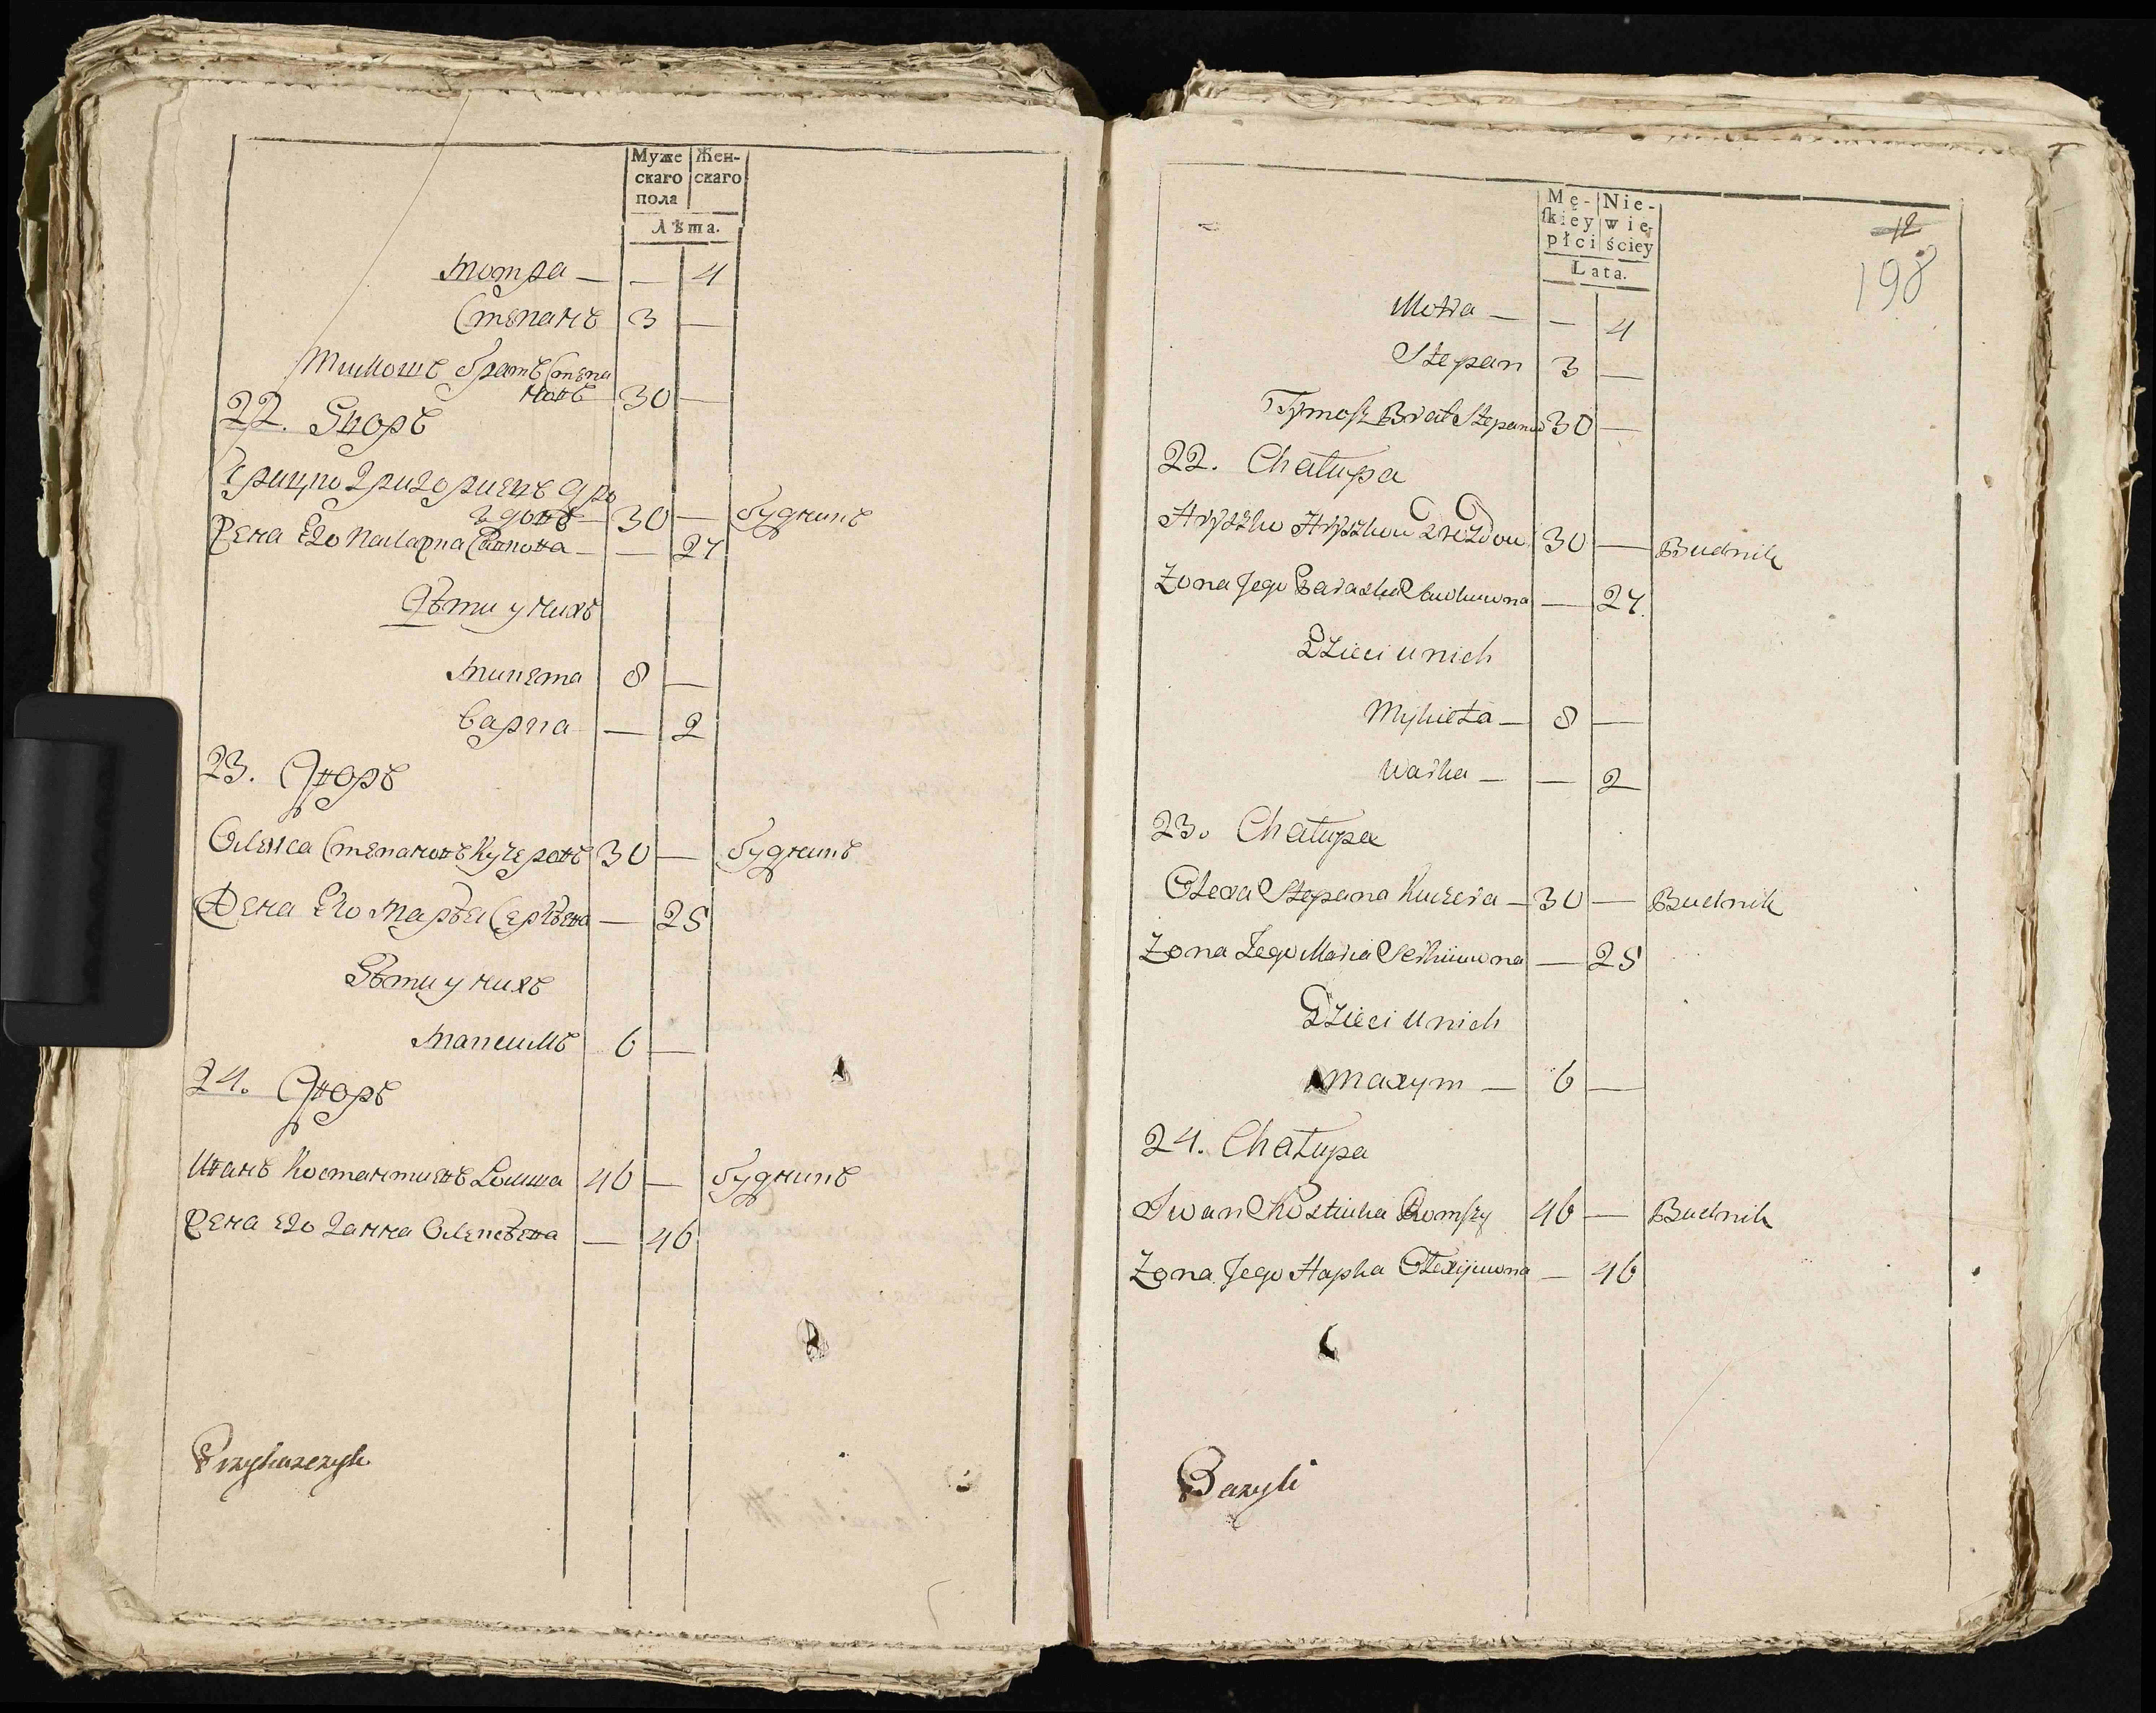 Муже Жен-
скаго скаго
пола
Лѣта.
Мотра — — 4
Степанъ 3 —
Тимошъ братъ Степа
новъ 30 —
22. Дворъ
Грицко Григориевъ Дро
здовъ — 30 — будникъ
Жена Его — 27
Дѣти у нихъ
Микета 8 —
Варка — 2
23. Дворъ
Олекса Степановъ Кучеровъ 30 — будникъ
Жена Его Марья Сергѣева — 25
Дѣти у нихъ
Максимъ 6 —
24. Дворъ
Иванъ Костантиевъ 46 — будникъ
Жена Его Ганна Олексѣева — 46
Przykaszczyk
Mę- Nie-
ſkiey wie-
płci ściey
Lata.
12
198
Motra — — 4
Stepan 3 —
Tymosz Brat Stepanów 30 —
22. Chałupa
Hryszko Hryszkow Drozdow 30 — Budnik
Zona Jego Paraska — 27
Dzieci u nich
Mykieta — 8 —
Warka — — 2
23. Chałupa
Olexa Stepana Kuczera — 30 — Budnik
Zona Jego Maria Serhiiowna — 25
Dzieci u nich
Maxym — 6 —
24. Chałupa
Iwan Kostiuka Romszy 46 — Budnik
Zona Jego Hapka Olexijowna — 46
Bazyli